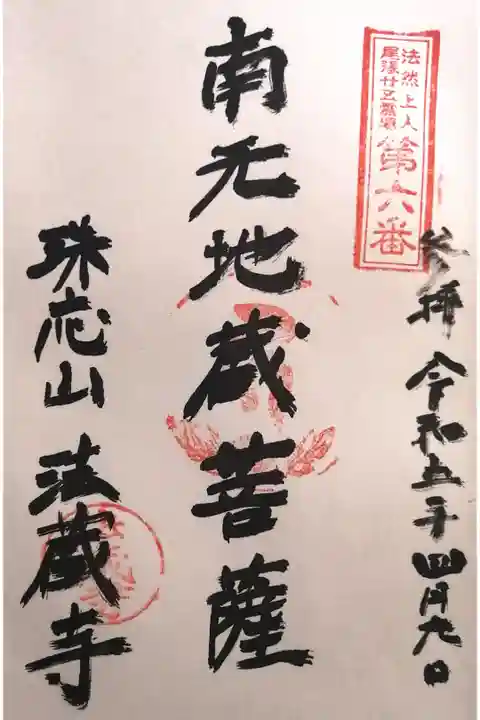 法然上人
尾張廿五霊場
第六番
参拝 令和五年四月九日
南无地蔵菩薩
珠応山 法蔵寺